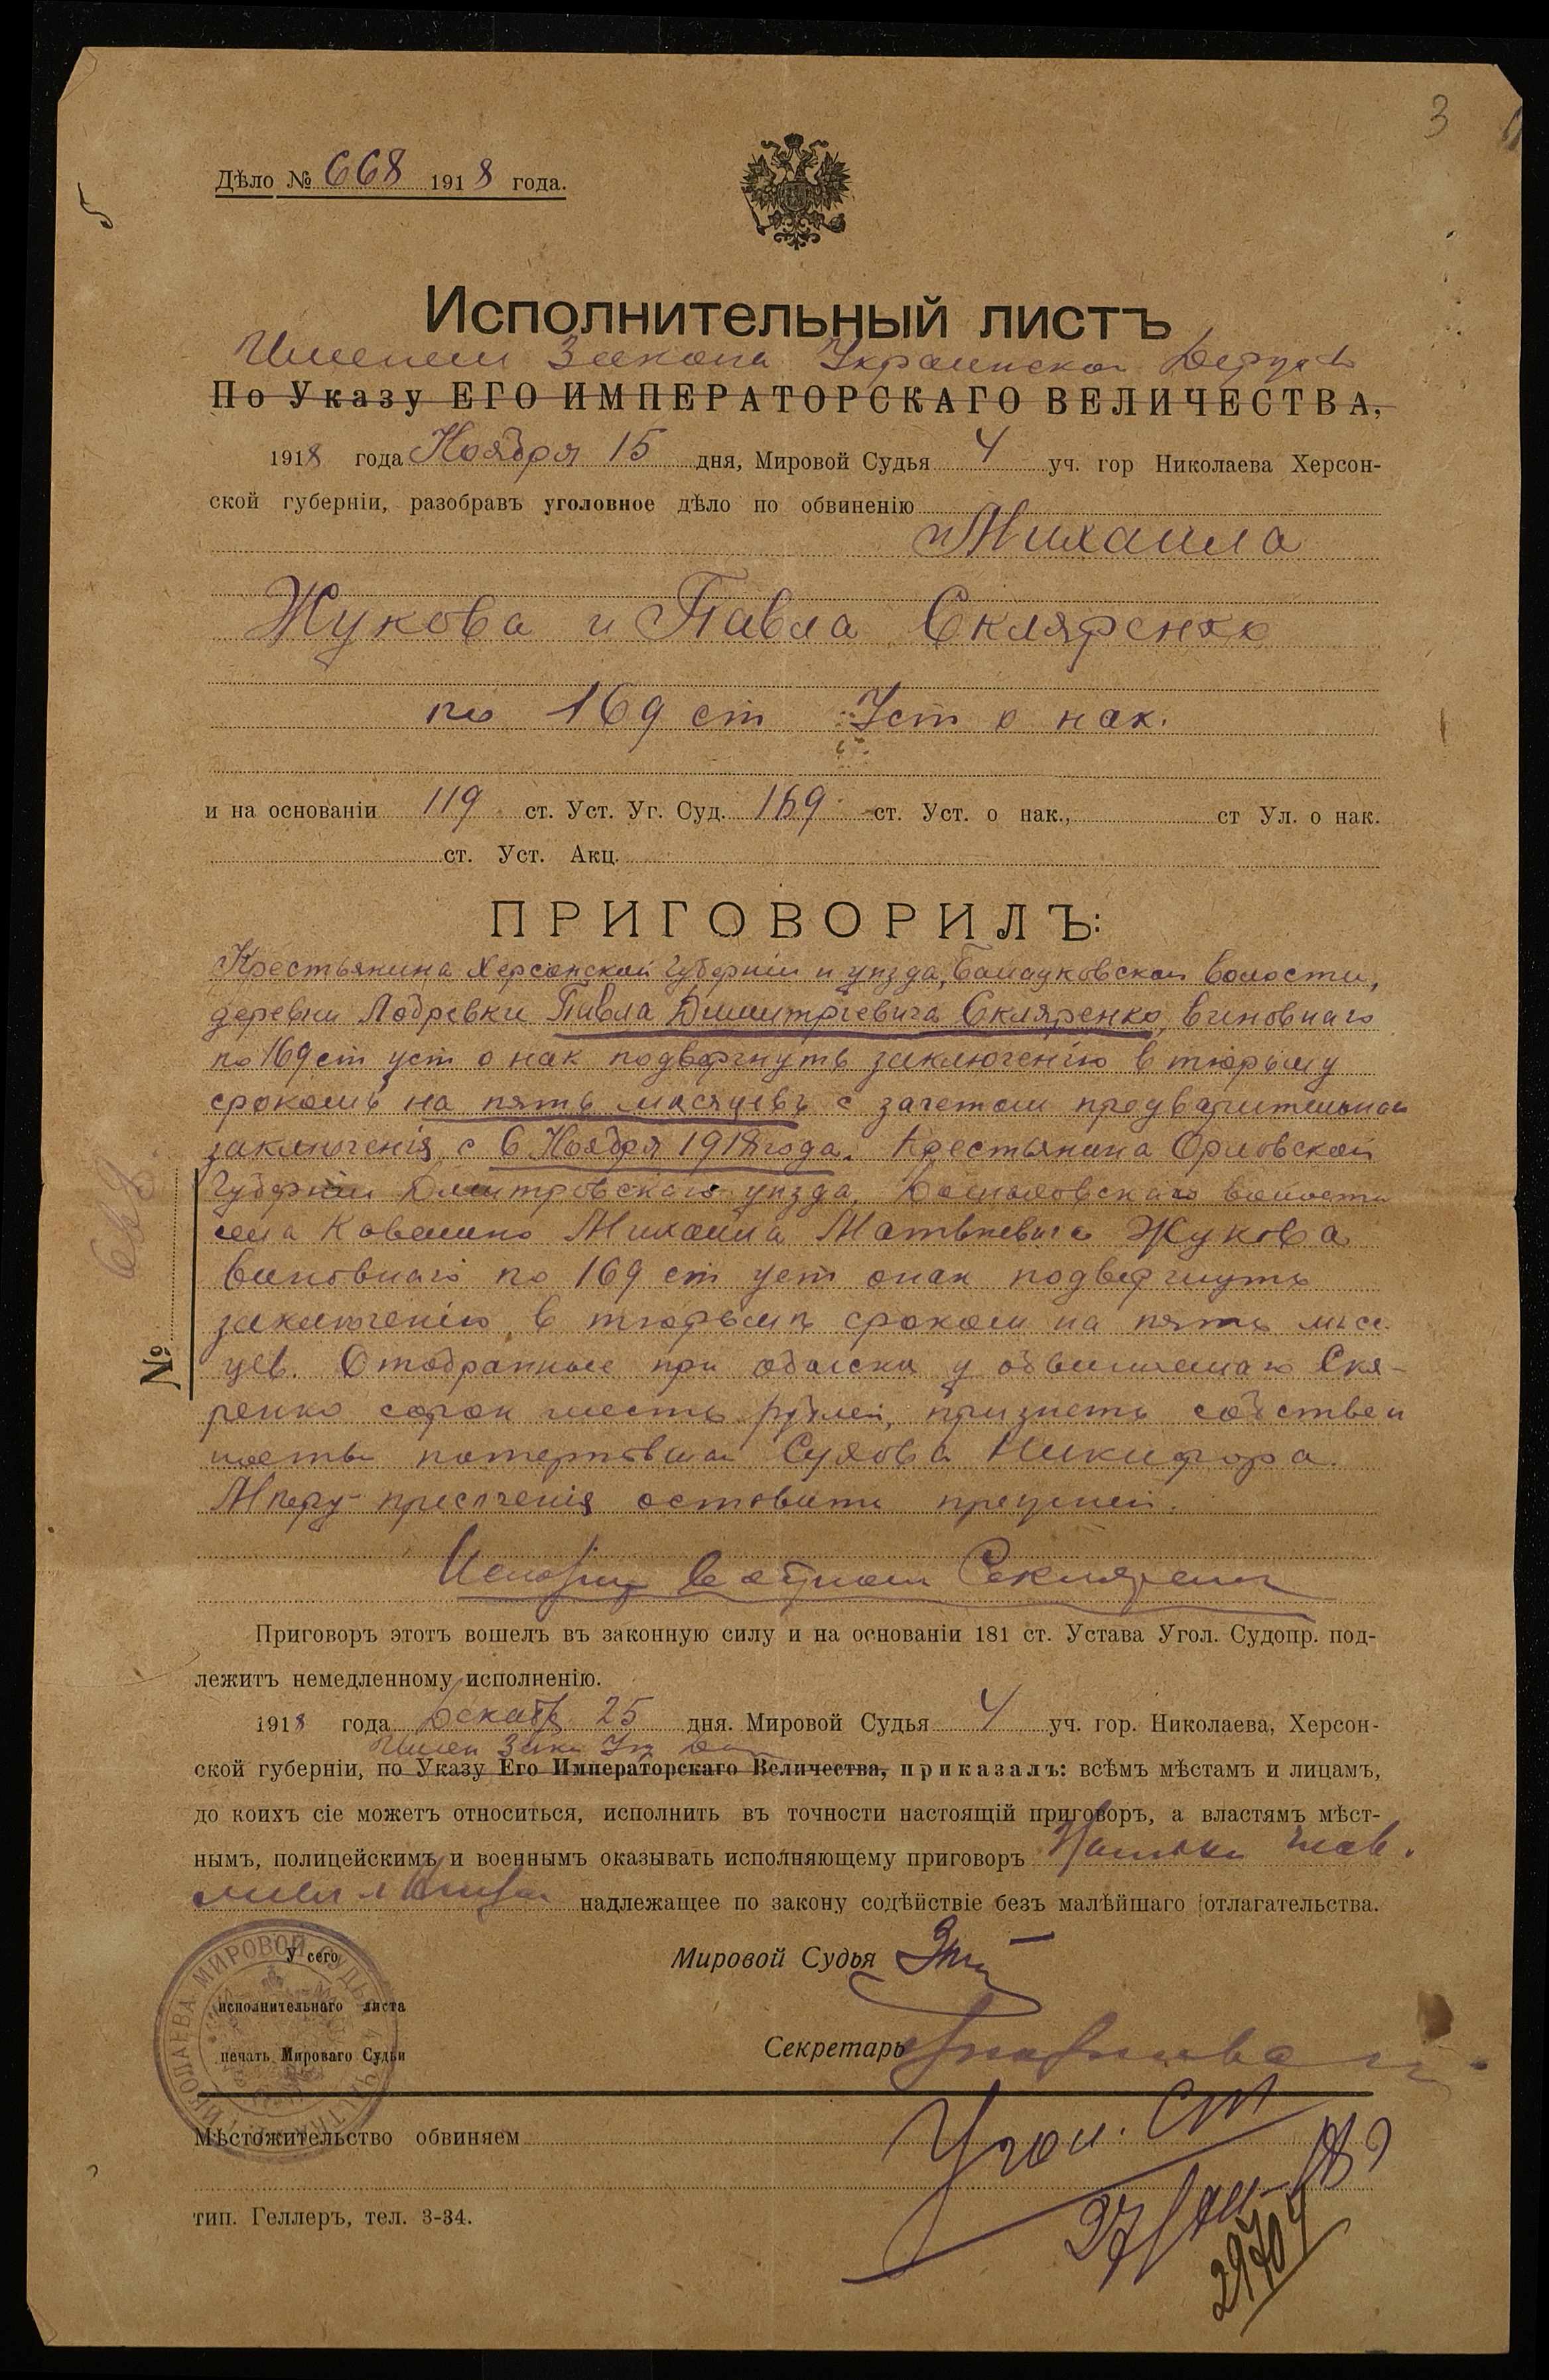 3
Дѣло № 668 1918 года.
Исполнительный листъ
Именем Закона Украинской Держав
По Указу ЕГО ИМПЕРАТОРСКАГО ВЕЛИЧЕСТВА,
1918 года Ноября 15 дня, Мировой Судья 4 уч. гор Николаева Херсон-
ской губерніи, разобравъ уголовное дѣло по обвиненію
Михаила
Жукова и Павла Скляренко
по 169 ст Уст о нак.
и на основаніи 119 ст. Уст. Уг. Суд. 169 ст. Уст. о нак., ст Ул. о нак.
ст. Уст. Акц.
ПРИГОВОРИЛЪ:
Крестьянина Херсонской Губерніи и уѣзда, волости,
деревни Павла Димитріевича Скляренко, виновнаго
по 169 ст уст о нак подвергнуть заключенію в тюрьму
срокомъ на пять мѣсяцевъ с зачетом предварительнаго
заключенія с 6 Ноября 1918 года. Крестьянина Орловской
Губерніи Дмитровскаго уѣзда, волости
села Михаила Матвѣевича Жукова
виновнаго по 169 ст уст о нак подвергнуть
заключенію в тюрьмѣ сроком на пять мѣся
цев. Отобранные при обыскѣ у обвиняемаго Скля-
ренко сорок шесть рублей, признать собствен
ность потерпѣвшаго Сухова Никифора.
Мѣру пресѣченія оставить прежней.
Скляренко
№
668
Приговоръ этотъ вошелъ въ законную силу и на основаніи 181 ст. Устава Угол. Судопр. под-
лежитъ немедленному исполненію.
1918 года Декабр 25 дня. Мировой Судья 4 уч. гор. Николаева, Херсон-
Имен Зак Ук
ской губерніи, по Указу Его Императорскаго Величества, приказалъ: всѣмъ мѣстамъ и лицамъ,
до коихъ сіе можетъ относиться, исполнить въ точности настоящій приговоръ, а властямъ мѣст-
нымъ, полицейскимъ и военнымъ оказывать исполняющему приговоръ
надлежащее по закону содѣйствіе безъ малѣйшаго отлагательства.
У сего
исполнительнаго листа
печать Мироваго Судьи
Мировой Судья
Секретарь
Мѣстожительство обвиняем
Угол. ст
тип. Геллеръ, тел. 3-34.
29704